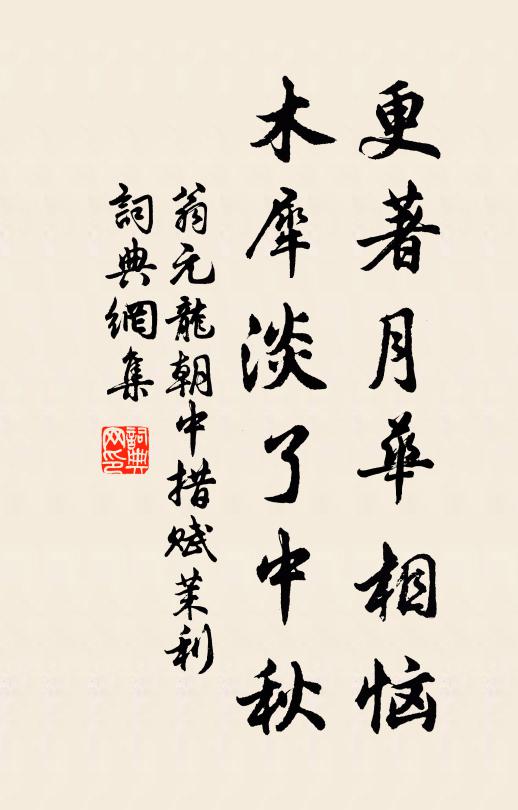 更著月華相恼
木犀淡了中秋
翁元龍朝中措赋茉利
詞典網集
詞典网印